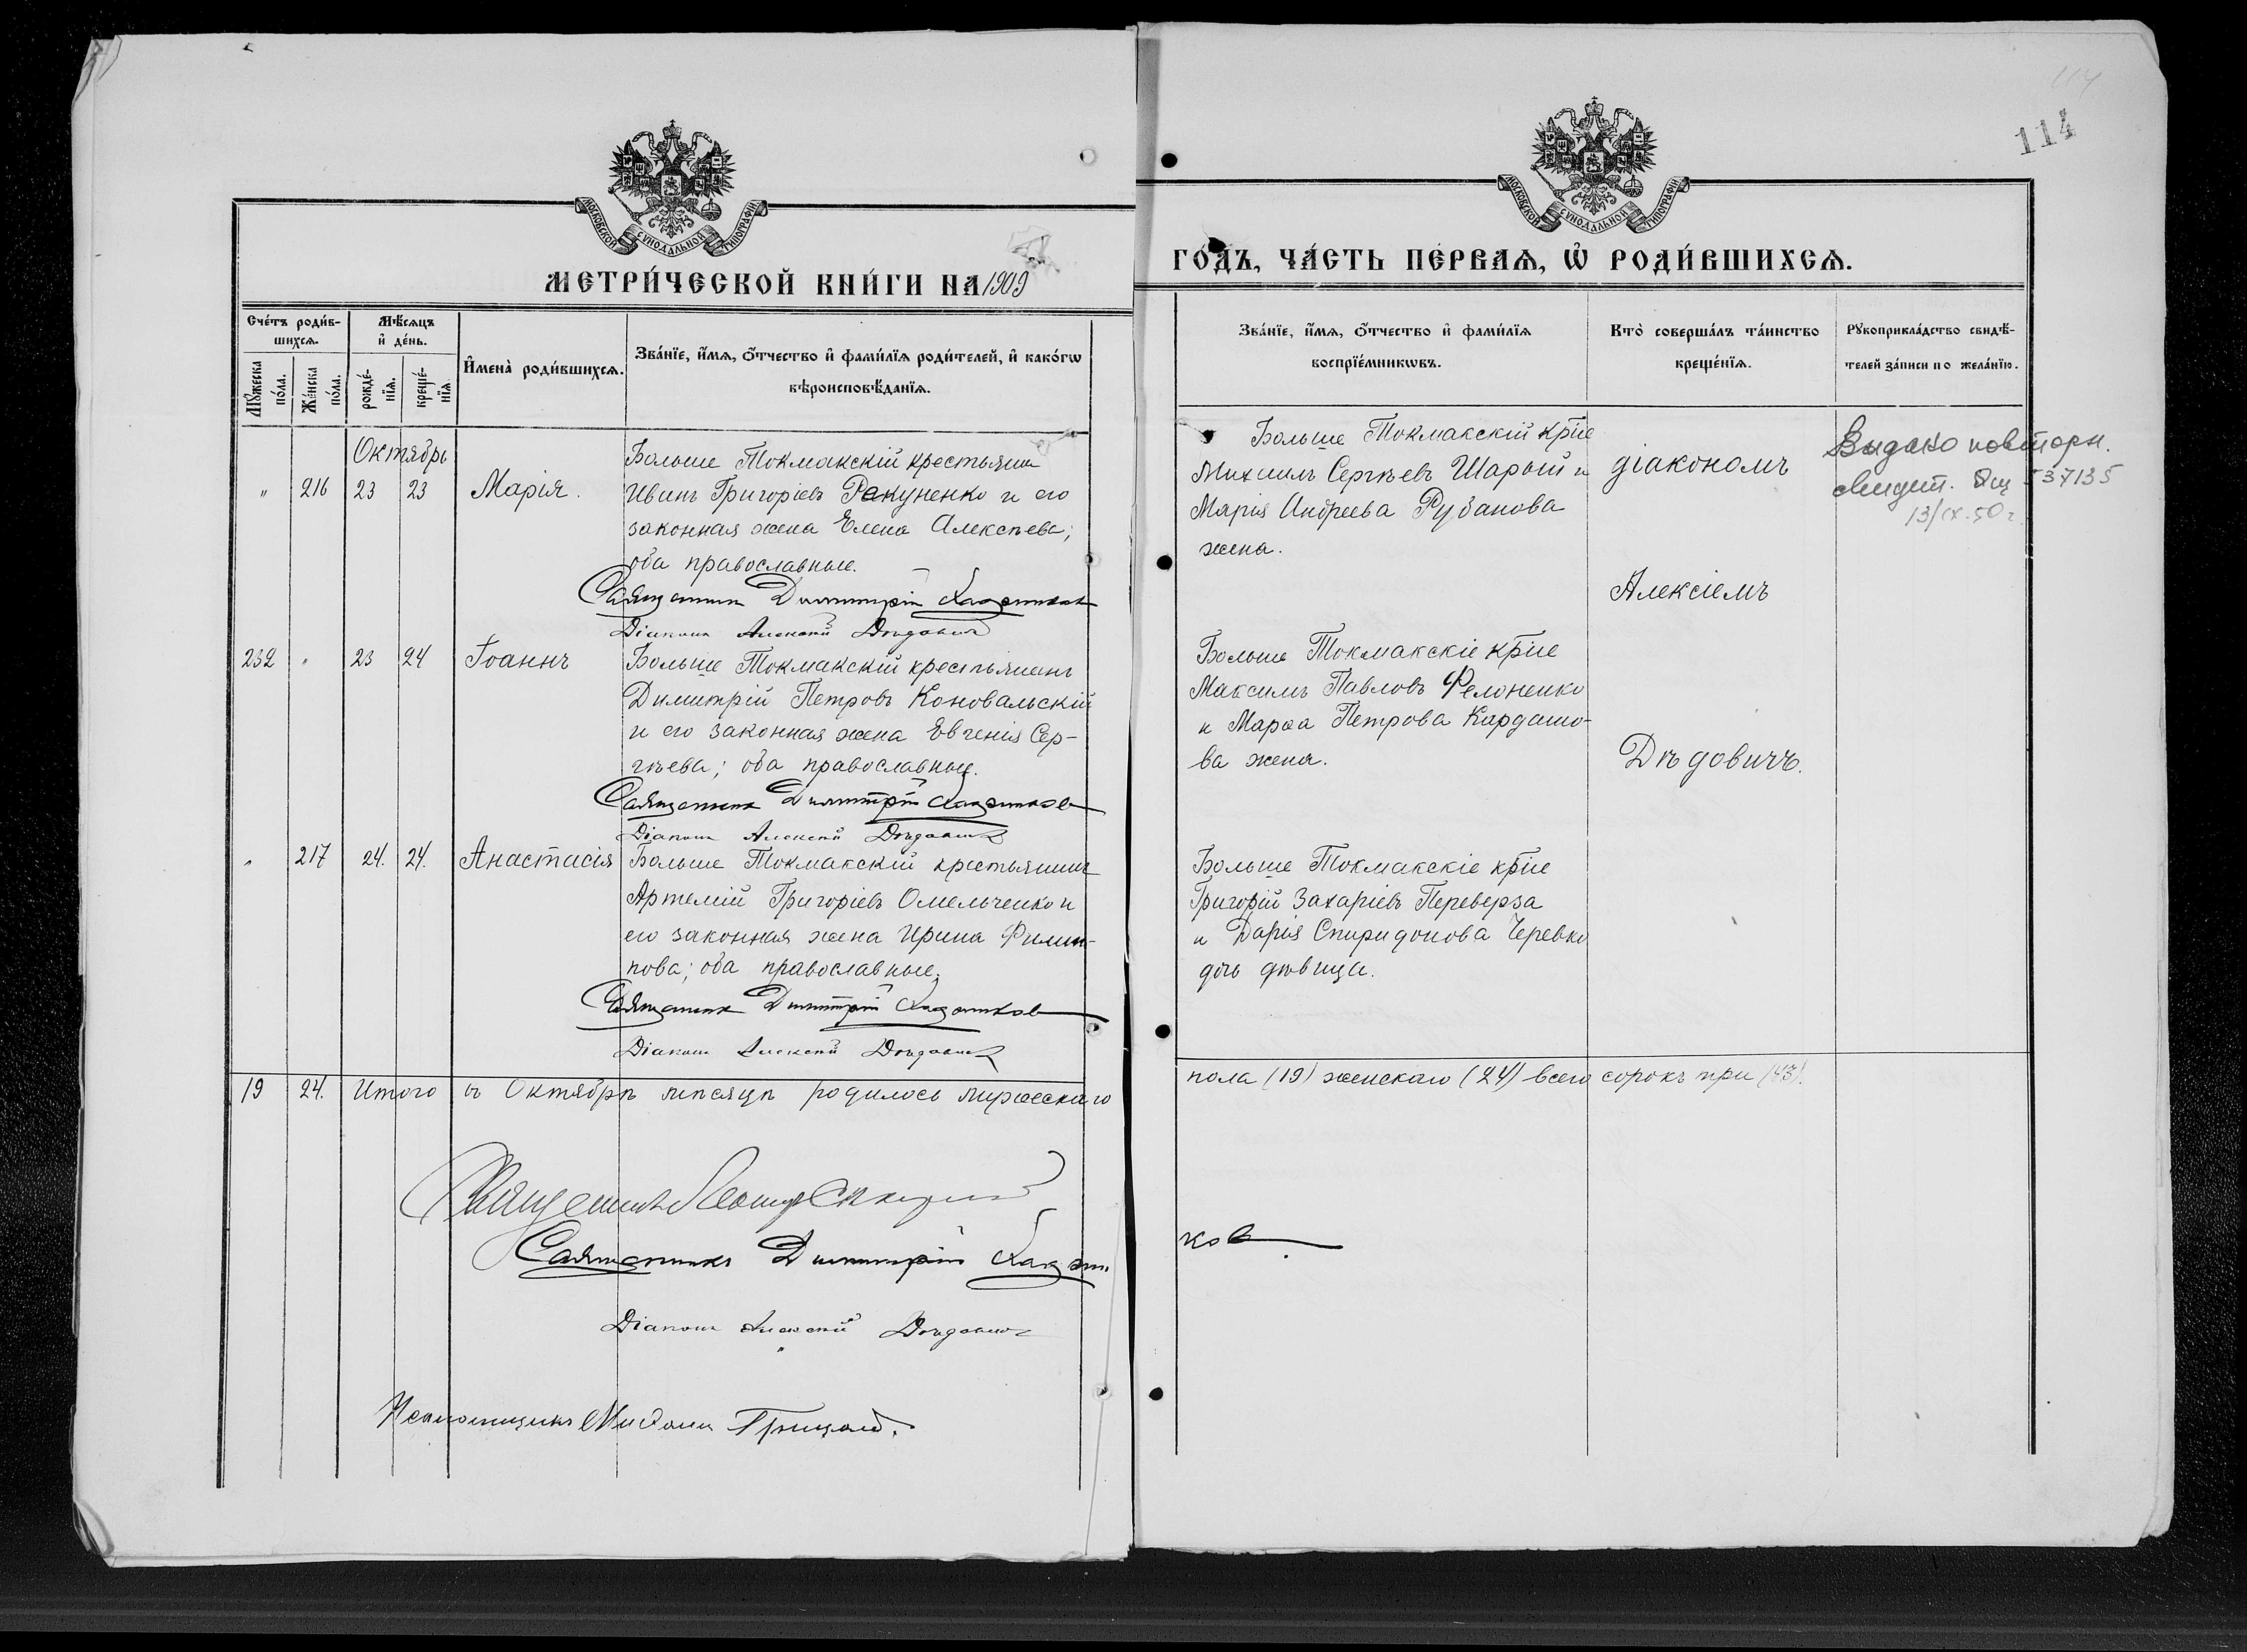 114
114
МОСКОВСКОЙ СѴНОДАЛЬНОЙ ТИПОГРАФІИ
МОСКОВСКОЙ СѴНОДАЛЬНОЙ ТИПОГРАФІИ
МЕТРИ́ЧЕСКОЙ КНИ́ГИ НА 1909
ГО́ДЪ, ЧА́СТЬ ПЕ́РВАѦ, Ѡ҆ РОДИ́ВШИХСѦ.
Сче́тъ роди́вшихсѧ.
Мꙋ́жеска по́ла.
Же́нска по́ла.
Мѣ́сѧцъ и҆ де́нь.
рожде́нїѧ.
креще́нїѧ
И҆мена̀ роди́вшихсѧ.
Зва́нїе, и҆́мѧ, ѻ҆́тчество и҆ фами́лїѧ роди́телей, и҆ како́гѡ
вѣроисповѣ́данїѧ.
Зва́нїе, и҆́мѧ, ѻ҆́тчество и҆ фами́лїѧ
воспрїе́мникѡвъ.
Кто̀ соверша́лъ та́инство
креще́нїѧ.
Рꙋкоприкла́дство свидѣ́-
телей за́писи по жела́нїю.
Октябрь
" 216 23 23 Марія.
Больше Токмакскій крестьянин
Иванъ Григоріевъ Ракуненко и его
законная жена Елена Алексѣева;
оба православные.
Священникъ Димитрій
Діаконъ Алексѣй Дѣдовичъ
Больше Токмакскій кр̅іе
Михаилъ Сергѣевъ Шарый и
Марія Андреева Рубанова
жена.
діакономъ
Алексіемъ
Дѣдовичъ.
Выдано повторн.
свидет. 537135
13/IX-50 г.
232 " 23 24 Іоаннъ
Больше Токмакскій крестьянинъ
Димитрій Петровъ Коновальскій
и его законная жена Евгенія Сер-
гѣева; оба православные.
Священникъ Димитрій
Діаконъ Алексѣй Дѣдовичъ
Больше Токмакскіе кр̅іе
Максимъ Павловъ Фелоненко
и Марѳа Петрова Кардашо-
ва жена.
" 217 24. 24. Анастасія
Больше Токмакскій крестьянинъ
Артемій Григоріевъ Омельченко и
его законная жена Ирина Филип-
пова; оба православные.
Священникъ Димитрій
Діаконъ Алексѣй Дѣдовичъ
Больше Токмакскіе кр̅іе
Григорій Захаріевъ Переверза
и Дарія Спиридонова Черевко
дочь дѣвица.
19 24. Итого въ Октябрѣ мѣсяцѣ родилось мужескаго
пола (19) женскаго (24) всего сорокъ три (43).
Священникъ
Священникъ Димитрій
ков
Діаконъ Алексѣй Дѣдовичъ
Псаломщикъ